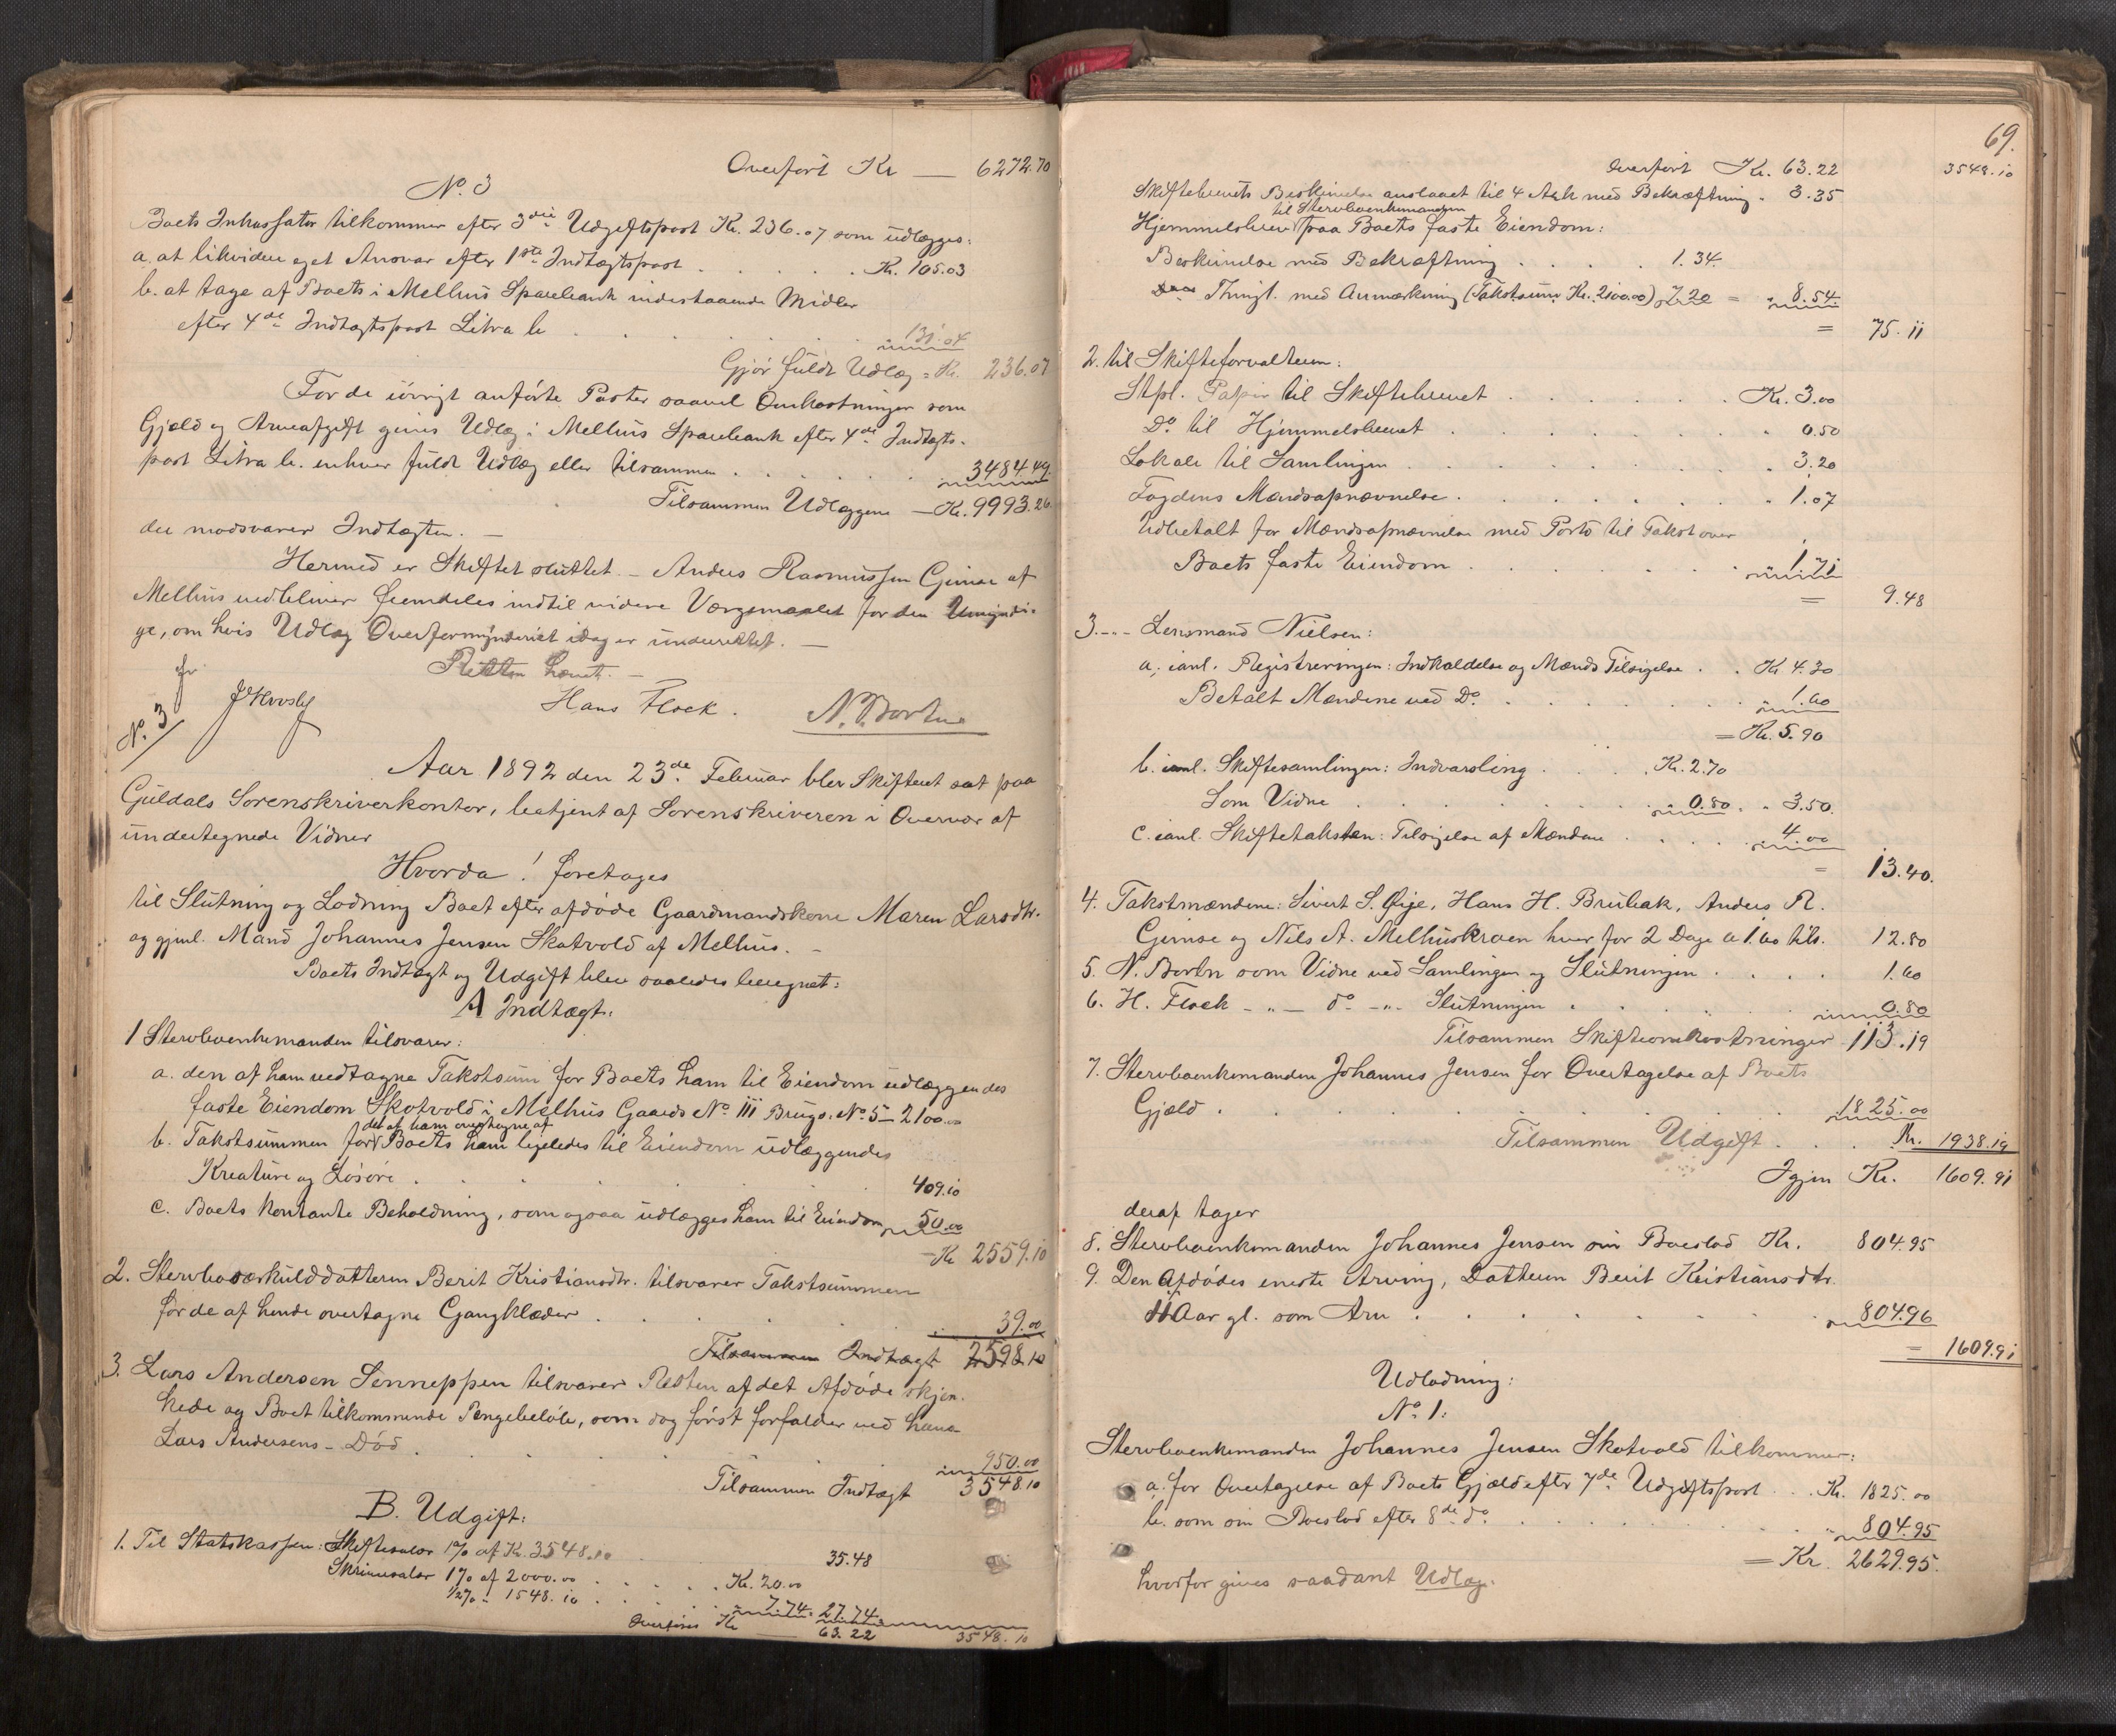 Overført Kr — 6272.70
No. 3
Boets Inkassator tilkommer efter 3die Udgiftspost Kr. 236.07 som udlægges:
a. at likvidere eget Ansvar efter 1ste Indtægtspost . . . . . Kr. 105.03
b. at tage af Boets i Melhus Sparebank indestaaende Midler
efter 4de Indtægtspost Litra b . . . . . 131.04
Gjør fuldt Udlæg = Kr. 236.07
For de iøvrigt anførte Poster saavel Omkostninger som
Gjæld og Arveafgift gives Udlæg i Melhus Sparebank efter 4de Indtægts-
post Litra b. enhver fuldt Udlæg eller tilsammen . . . . . 3484.49
Tilsammen Udlæggene — Kr. 9993.26
der modsvarer Indtægten. —
Hermed er Skiftet sluttet. — Anders Rasmussen Gimse af
Melhus vedbliver fremdeles indtil videre Værgemaalet for den Umyndi-
ge, om hvis Udlæg Overformynderiet idag er underrettet. —
Retten hævet. —
Hans Flock. N. Borten
No. 3
Aar 1892 den 23de Februar blev Skifteret sat paa
Guldals Sorenskriverkontor, betjent af Sorenskriveren i Overvær af
undertegnede Vidner
Hvorda! foretages
til Slutning og Lodning Boet efter afdøde Gaardmandskone Maren Larsdtr.
og gjenl. Mand Johannes Jensen Skotvold af Melhus. —
Boets Indtægt og Udgift blev saaledes beregnet:
A Indtægt:
1 Stervboenkemanden tilsvarer:
a. den af ham vedtagne Takstsum for Boets ham til Eiendom udlæggendes
faste Eiendom Skotvold i Melhus Gaards No. 111 Brugs. No. 5 — 2100.00
det af ham overtagne af
b. Takstsummen for Boets ham ligeledes til Eiendom udlæggendes
Kreature og Løsøre . . . . . 409.10
c. Boets kontante Beholdning, som ogsaa udlægges ham til Eiendom 50.00
— Kr 2559.10
2. Stervbosærkulddatteren Berit Kristiansdtr. tilsvarer Takstsummen
for de af hende overtagne Gangklæder . . . . . 39.00
Tilsammen Indtægt 2598.10
3. Lars Andersen Sønneppen tilsvarer Resten af det Afdøde skjæn-
kede og Boet tilkommende Pengebeløb, som dog først forfalder ved hans
Lars Andersens – Død . . . . . 950.00
Tilsammen Indtægt 3548.10
B. Udgift:
1. Til Statskassen: Skiftesalær 1% af Kr. 3548.10 35.48
Skriversalær 1% af 2000.00 . . . . . Kr. 20.00
1/2% " 1548.10 . . . . . 7.74 = 27.74
Overføres Kr 63.22 3548.10
69.
Overført Kr. 63.22 3548.10
Skiftebrevets Beskrivelse anslaaet til 4 Ark med Bekræftning . 3.35
til Stervboenkemanden
Hjemmelsbrev paa Boets faste Eiendom:
Beskrivelse med Bekræftning . . . . 1.34.
Thingl. med Anmærkning (Takstsum Kr. 2100.00) 7.20 = 8.54.
= 75.11
2. til Skifteforvalteren:
Stpl. Papir til Skiftebrevet . . . . . Kr. 3.00
Do til Hjemmelsbrevet . . . . . 0.50
Lokale til Samlingen . . . . . 3.20
Fogdens Mændsopnævnelse . . . . . 1.07
Udbetalt for Mændsopnævnelse med Porto til Takst over
Boets faste Eiendom . . . . . 1.71
= 9.48
3. -"- Lensmand Nielsen:
a. ianl. Registreringen: Indkaldelse og Mænds Tilsigelse . . Kr 4.30
Betalt Mændene ved Do. . . . . 1.60
= Kr. 5.90
b. ianl. Skiftesamlingen: Indvarsling . . . . Kr. 2.70
Som Vidne . . . . . 0.80 . " 3.50.
c. ianl. Skiftetaksten: Tilsigelse af Mændene . . . . 4.00
= 13.40.
4. Takstmændene: Sivert S. Øije, Hans H. Brubak, Anders R.
Gimse og Nils A. Melhuskroen hver for 2 Dage a 1.60 tils. 12.80
5. N. Borten som Vidne ved Samlingen og Slutningen . . . . 1.60
6. H. Flock - " - do - " - Slutningen . . . . 0.80
Tilsammen Skifteomkostninger 113.19
7. Stervboenkemanden Johannes Jensen for Overtagelse af Boets
Gjæld . . . . . 1825.00
Tilsammen Udgift . . . Kr. 1938.19
Igjen Kr. 1609.91
deraf tager
8. Stervboenkemanden Johannes Jensen sin Boeslod Kr. 804.95
9. Den Afdødes eneste Arving, Datteren Berit Kristiansdtr.
Aar gl. som Arv . . . . . 804.96
= 1609.91
Udlodning:
No. 1:
Stervboenkemanden Johannes Jensen Skotvold tilkommer:
a. for Overtagelse af Boets Gjæld efter 7de Udgiftspost . . . Kr. 1825.00
b. som sin Boeslod efter 8de do . . . . . 804.95
= Kr. 2629.95.
hvorfor gives saadant Udlæg.